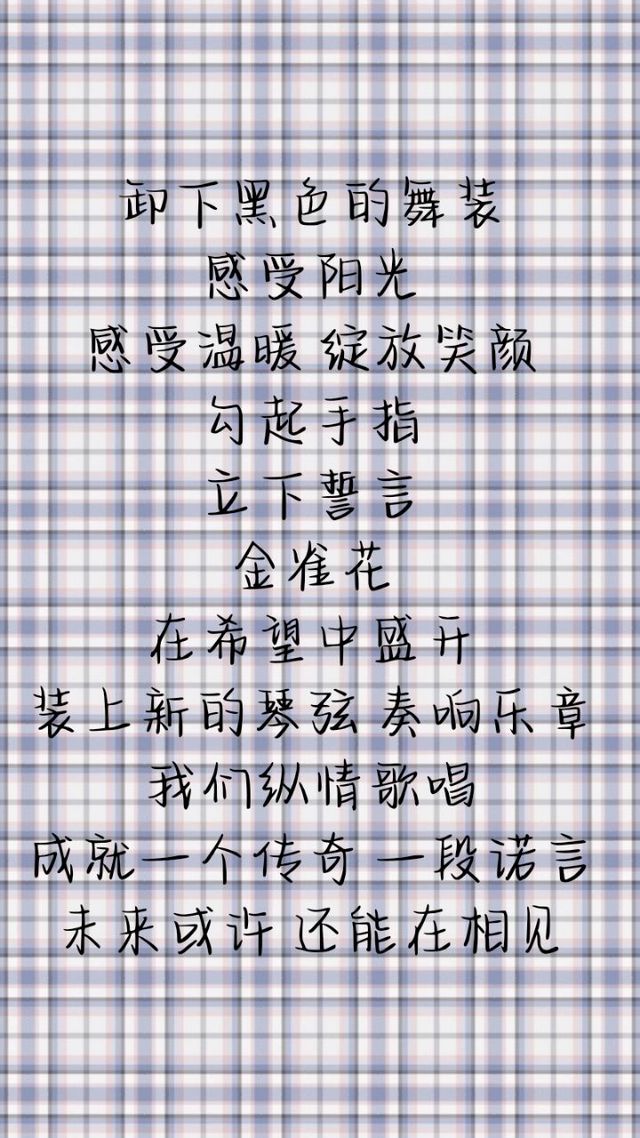 卸下黑色的舞装
感受阳光
感受温暖 绽放笑颜
勾起手指
立下誓言
金雀花
在希望中盛开
装上新的琴弦 奏响乐章
我们纵情歌唱
成就一个传奇 一段诺言
未来或许 还能在相见